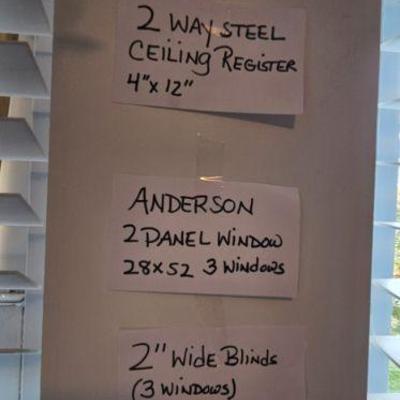 2 WAY STEEL
CEILING REGISTER
4"x 12"
ANDERSON
2 PANEL WINDOW
28x52 3 WINDOWS
2" WIDE BLINDS
(3 WINDOWS)